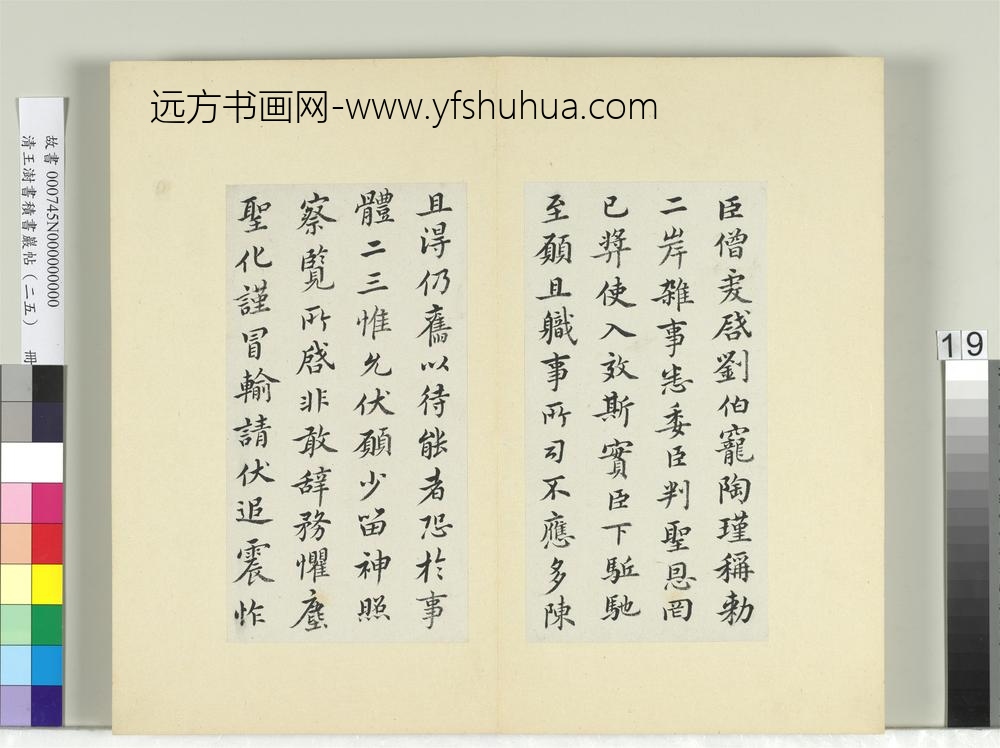 远方书画网-www.yfshuhua.com
故書 000745N000000000
清王澍書積書巖帖（二五） 冊
19
臣僧虔啓劉伯寵陶瑾稱勅
二岸雜事悉委臣判聖恩罔
已奬使入效斯實臣下駈馳
至願且軄事所司不應多陳
且淂仍舊以待能者恐於事
體二三惟允伏願少留神照
察覽所啓非敢辞務懼塵
聖化謹冒輸請伏追震怍